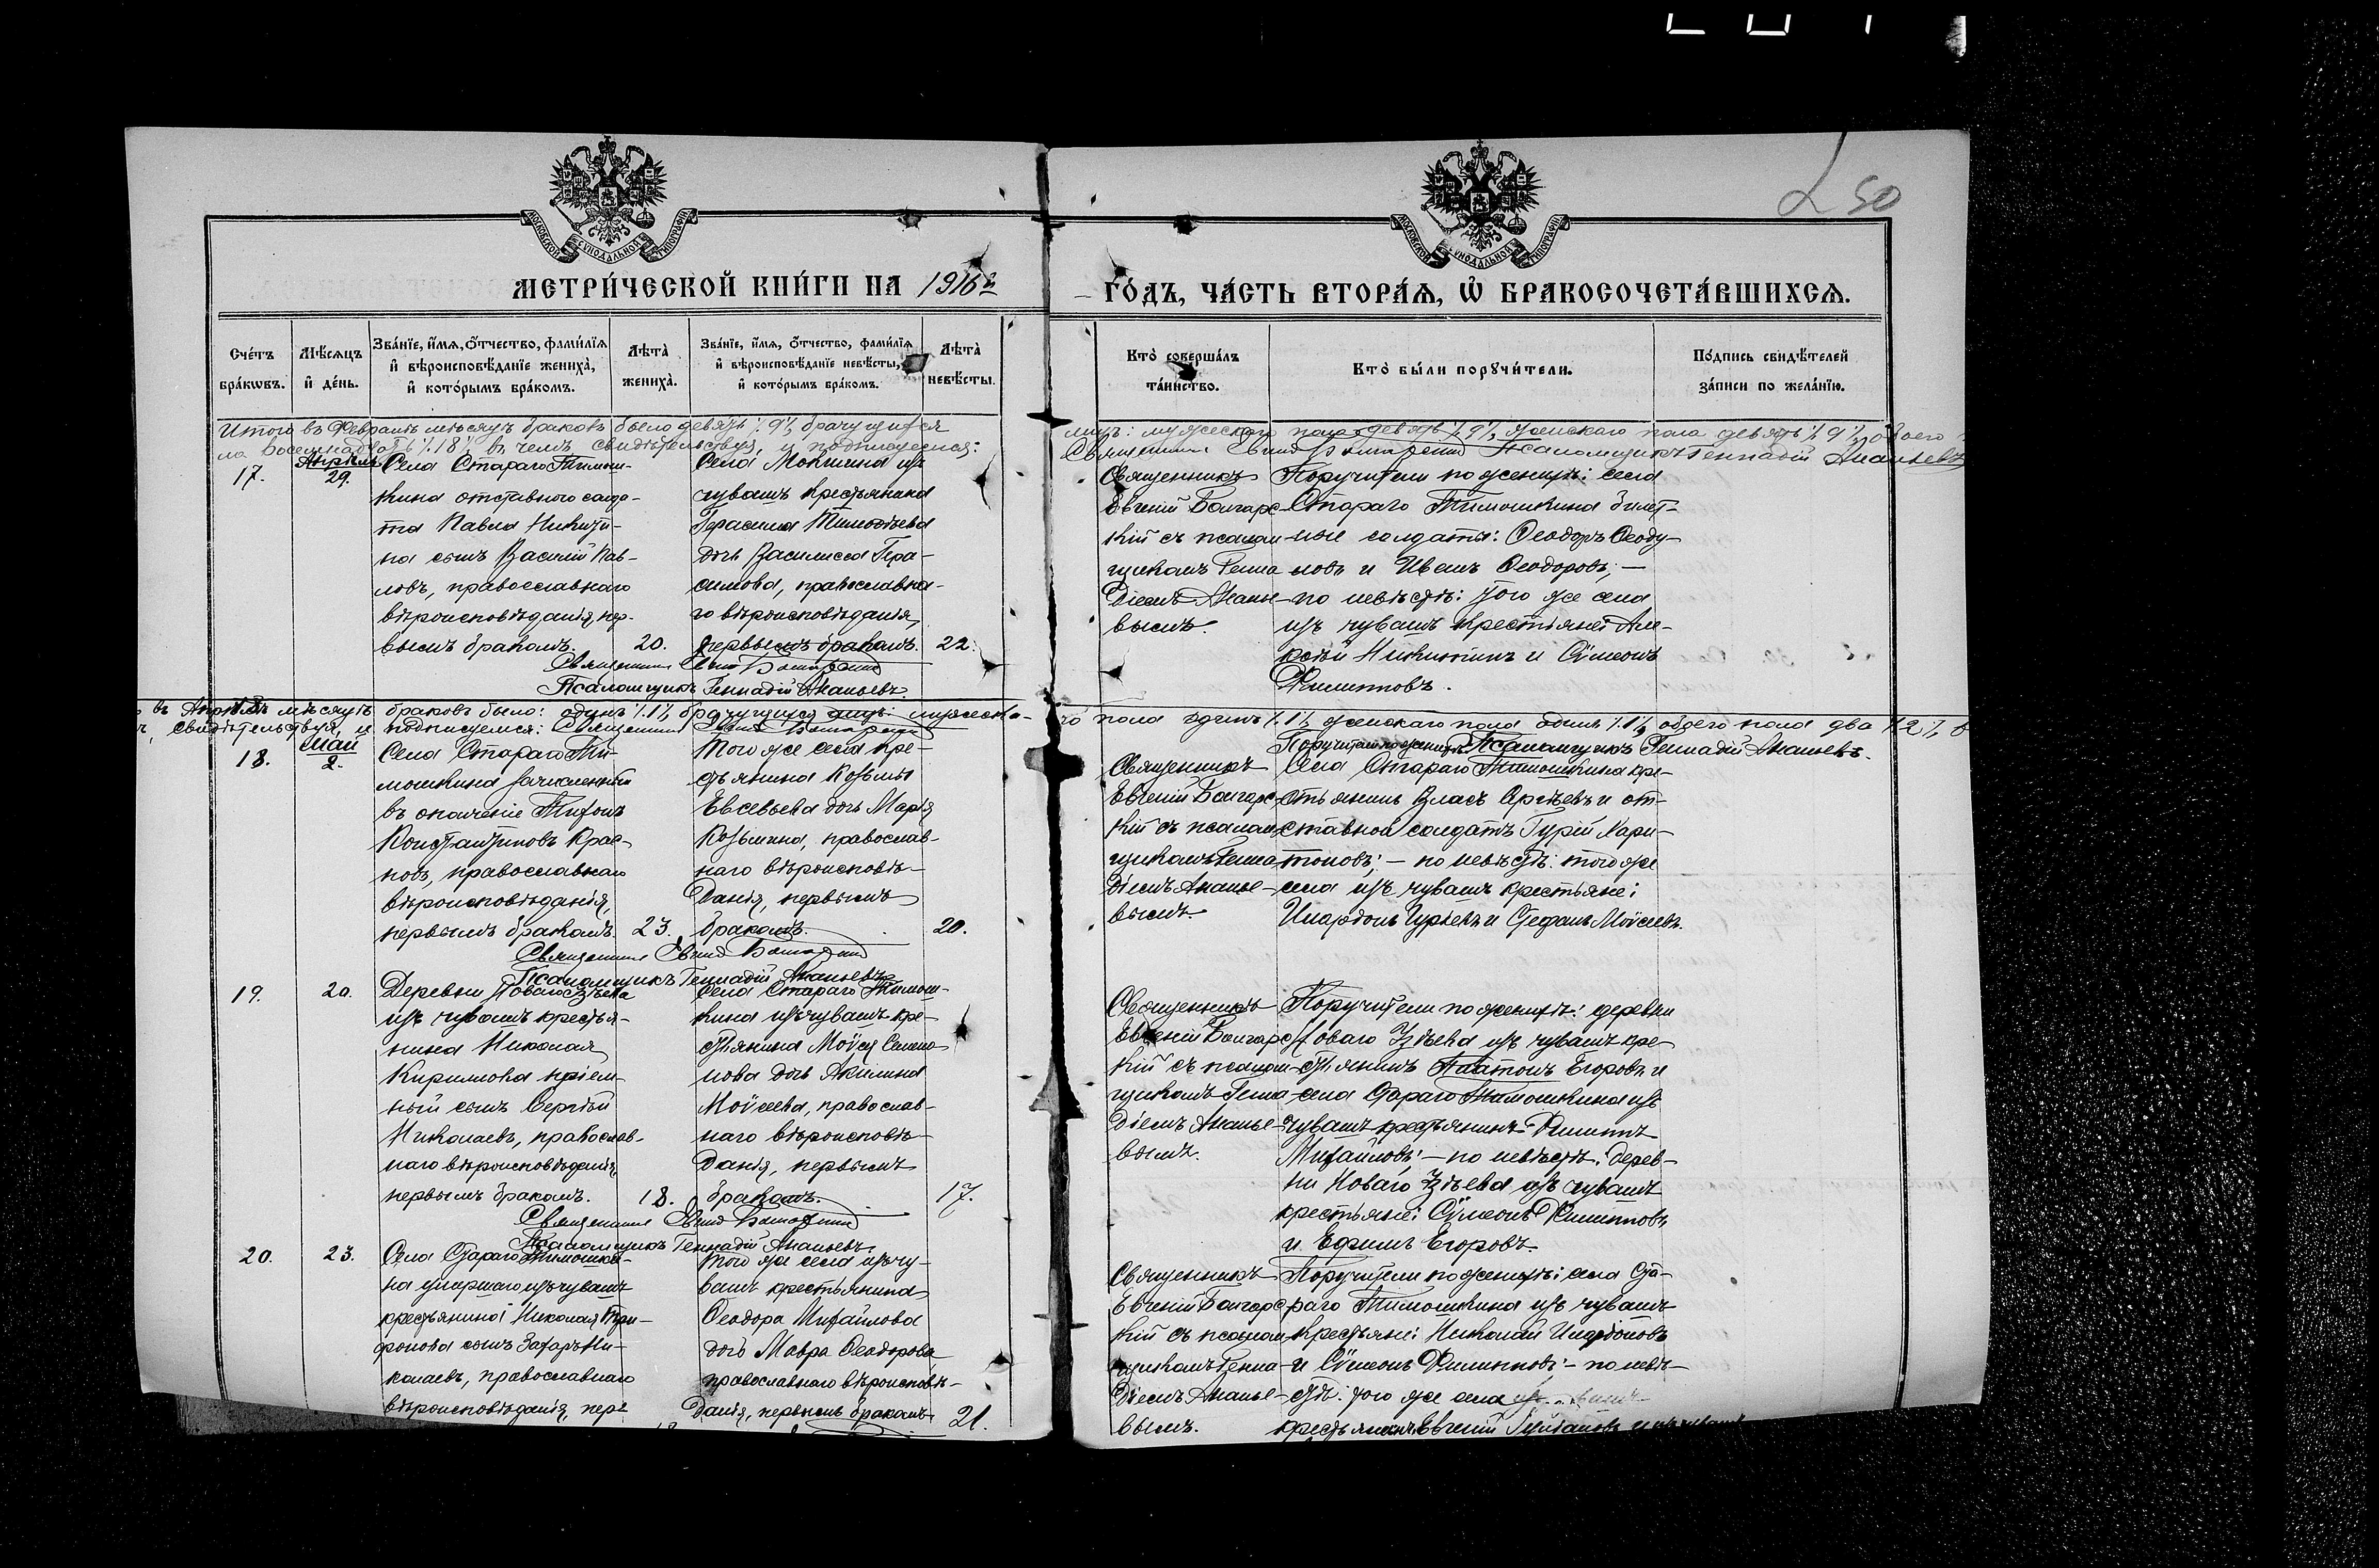 250
МОСКОВСКОЙ СУНОДАЛЬНОЙ ТИПОГРАФІИ
МОСКОВСКОЙ СУНОДАЛЬНОЙ ТИПОГРАФІИ
МЕТРИ́ЧЕСКОЙ КНИ́ГИ НА 1916й
ГО́ДЪ, ЧА́СТЬ ВТОРА́Ѧ, Ѽ БРАКОСОЧЕТА́ВШИХСѦ.
Сче́тъ бра́кѡвъ.
Мѣ́сѧцъ и҆ де́нь.
Зва́нїе, и҆́мѧ, ѻ҆́тчество, фами́лїѧ и҆ вѣроисповѣ́данїе жениха̀, и҆ кото́рымъ бра́комъ.
Лѣ́та̀ жениха̀.
Зва́нїе, и҆́мѧ, ѻ҆́тчество, фами́лїѧ и҆ вѣроисповѣ́данїе невѣ́сты, и҆ кото́рымъ бра́комъ.
Лѣ́та̀ невѣ́сты.
Кто̀ соверша́лъ та́инство.
Кто̀ бы́ли порꙋчи́тели.
По́дпись свидѣ́телей за́писи по жела́нїю.
Итого въ Февралѣ мѣсяцѣ браковъ было девять %9%, брачущихся
лицъ: мужескаго пола девять %9%, женскаго пола девять %9%, обоего
ла восемнадцать %18% въ чемъ свидѣтельствуя, и подписуемся:
Священникъ Псаломщикъ Геннадій Ананьевъ
17.
Апрѣль
29.
Села Стараго Тимош-
кина отставного солда-
та Павла Никити-
на сынъ Василій Пав-
ловъ, православнаго
вѣроисповѣданія, пер-
вымъ бракомъ.
20.
Села Мокшина изъ
чувашъ крестьянина
Герасима Тимофѣева
дочь Василиса Гера-
симова, православна-
го вѣроисповѣданія,
первымъ бракомъ.
22.
Священникъ
Евгеній Болгарс-
кій съ псалом-
щикомъ Генна
діемъ Ананье-
вымъ.
Поручители по женихѣ: села
Стараго Тимошкина билет-
ные солдаты: Ѳеодоръ Ѳеоду-
ловъ и Иванъ Ѳеодоровъ; —
по невѣстѣ: того же села
изъ чувашъ крестьяне: Але-
ксѣй Никитинъ и Сѵмеонъ
Филипповъ.
Священникъ
Псаломщикъ Геннадій Ананьевъ.
въ Апрѣлѣ мѣсяцѣ браковъ было: одинъ %1%, брачущихся лицъ: мужеска-
го пола одинъ %1%, женскаго пола одна %1%, обоего пола два %2%, в
свидѣтельствуя, и подписуемся: Священникъ
Псаломщикъ Геннадій Ананьевъ.
18.
Май
2.
Села Стараго Ти-
мошкина зачисленный
въ ополченіе Тихонъ
Константиновъ Крас-
новъ, православнаго
вѣроисповѣданія,
первымъ бракомъ.
23.
Того же села кре-
стьянина Козьмы
Евсевьева дочь Марія
Козьмина, православ-
наго вѣроисповѣ-
данія, первымъ
бракомъ.
20.
Священникъ
Евгеній Болгарс-
кій съ псалом
щикомъ Генна
діемъ Ананье-
вымъ
Поручители по женихѣ:
Села Стараго Тимошкина кре-
стьянинъ Власъ и от-
ставной солдатъ Гурій Хари-
тоновъ; — по невѣстѣ: того же
села изъ чувашъ крестьяне:
Иларіонъ Гурьевъ и Стефанъ Моѵсеевъ.
Священникъ
Псаломщикъ Геннадій Ананьевъ
19.
20.
Деревни Новаго
изъ чувашъ крестья-
нина Николая
Кириллова пріем-
ный сынъ Сергѣй
Николаевъ, православ-
наго вѣроисповѣданія,
первымъ бракомъ.
18.
Села Стараго Тимош-
кина изъ чувашъ кре-
стьянина Моѵсея Семено
нова дочь Акилина
Моѵсеева, православ-
наго вѣроисповѣ-
данія, первымъ
бракомъ.
17.
Священникъ
Евгеній Болгарс
кій съ псалом-
щикомъ Генна
діемъ Ананье-
вымъ.
Поручители по женихѣ: деревни
Новаго изъ чувашъ кре-
стьянинъ Платонъ Егоровъ и
села Стараго Тимошкина изъ
чувашъ крестьянинъ Филиппъ
Михайловъ; — по невѣстѣ: дерев-
ни Новаго изъ чувашъ
крестьяне: Сѵмеонъ Филипповъ
и Ефимъ Егоровъ.
Священникъ
Псаломщикъ Геннадій Ананьевъ.
20.
23.
Села Стараго Тимошки-
на умершаго изъ чувашъ
крестьянина Николая Три-
фонова сынъ Захаръ Ни-
колаевъ, православнаго
вѣроисповѣданія, пер-
Того же села изъ чу-
вашъ крестьянина
Ѳеодора Михайлова
дочь Мавра Ѳеодорова
православнаго вѣроисповѣ-
данія, первымъ бракомъ
21.
Священникъ
Евгеній Болгарс
кій съ псалом
щикомъ Генна-
діемъ Ананье-
вымъ.
Поручители по женихѣ: села Ста-
раго Тимошкина изъ чувашъ
крестьяне: Николай Иларіоновъ
и Сѵмеонъ Филипповъ; — по невѣ-
стѣ: того же села
крестьянинъ Евгеній